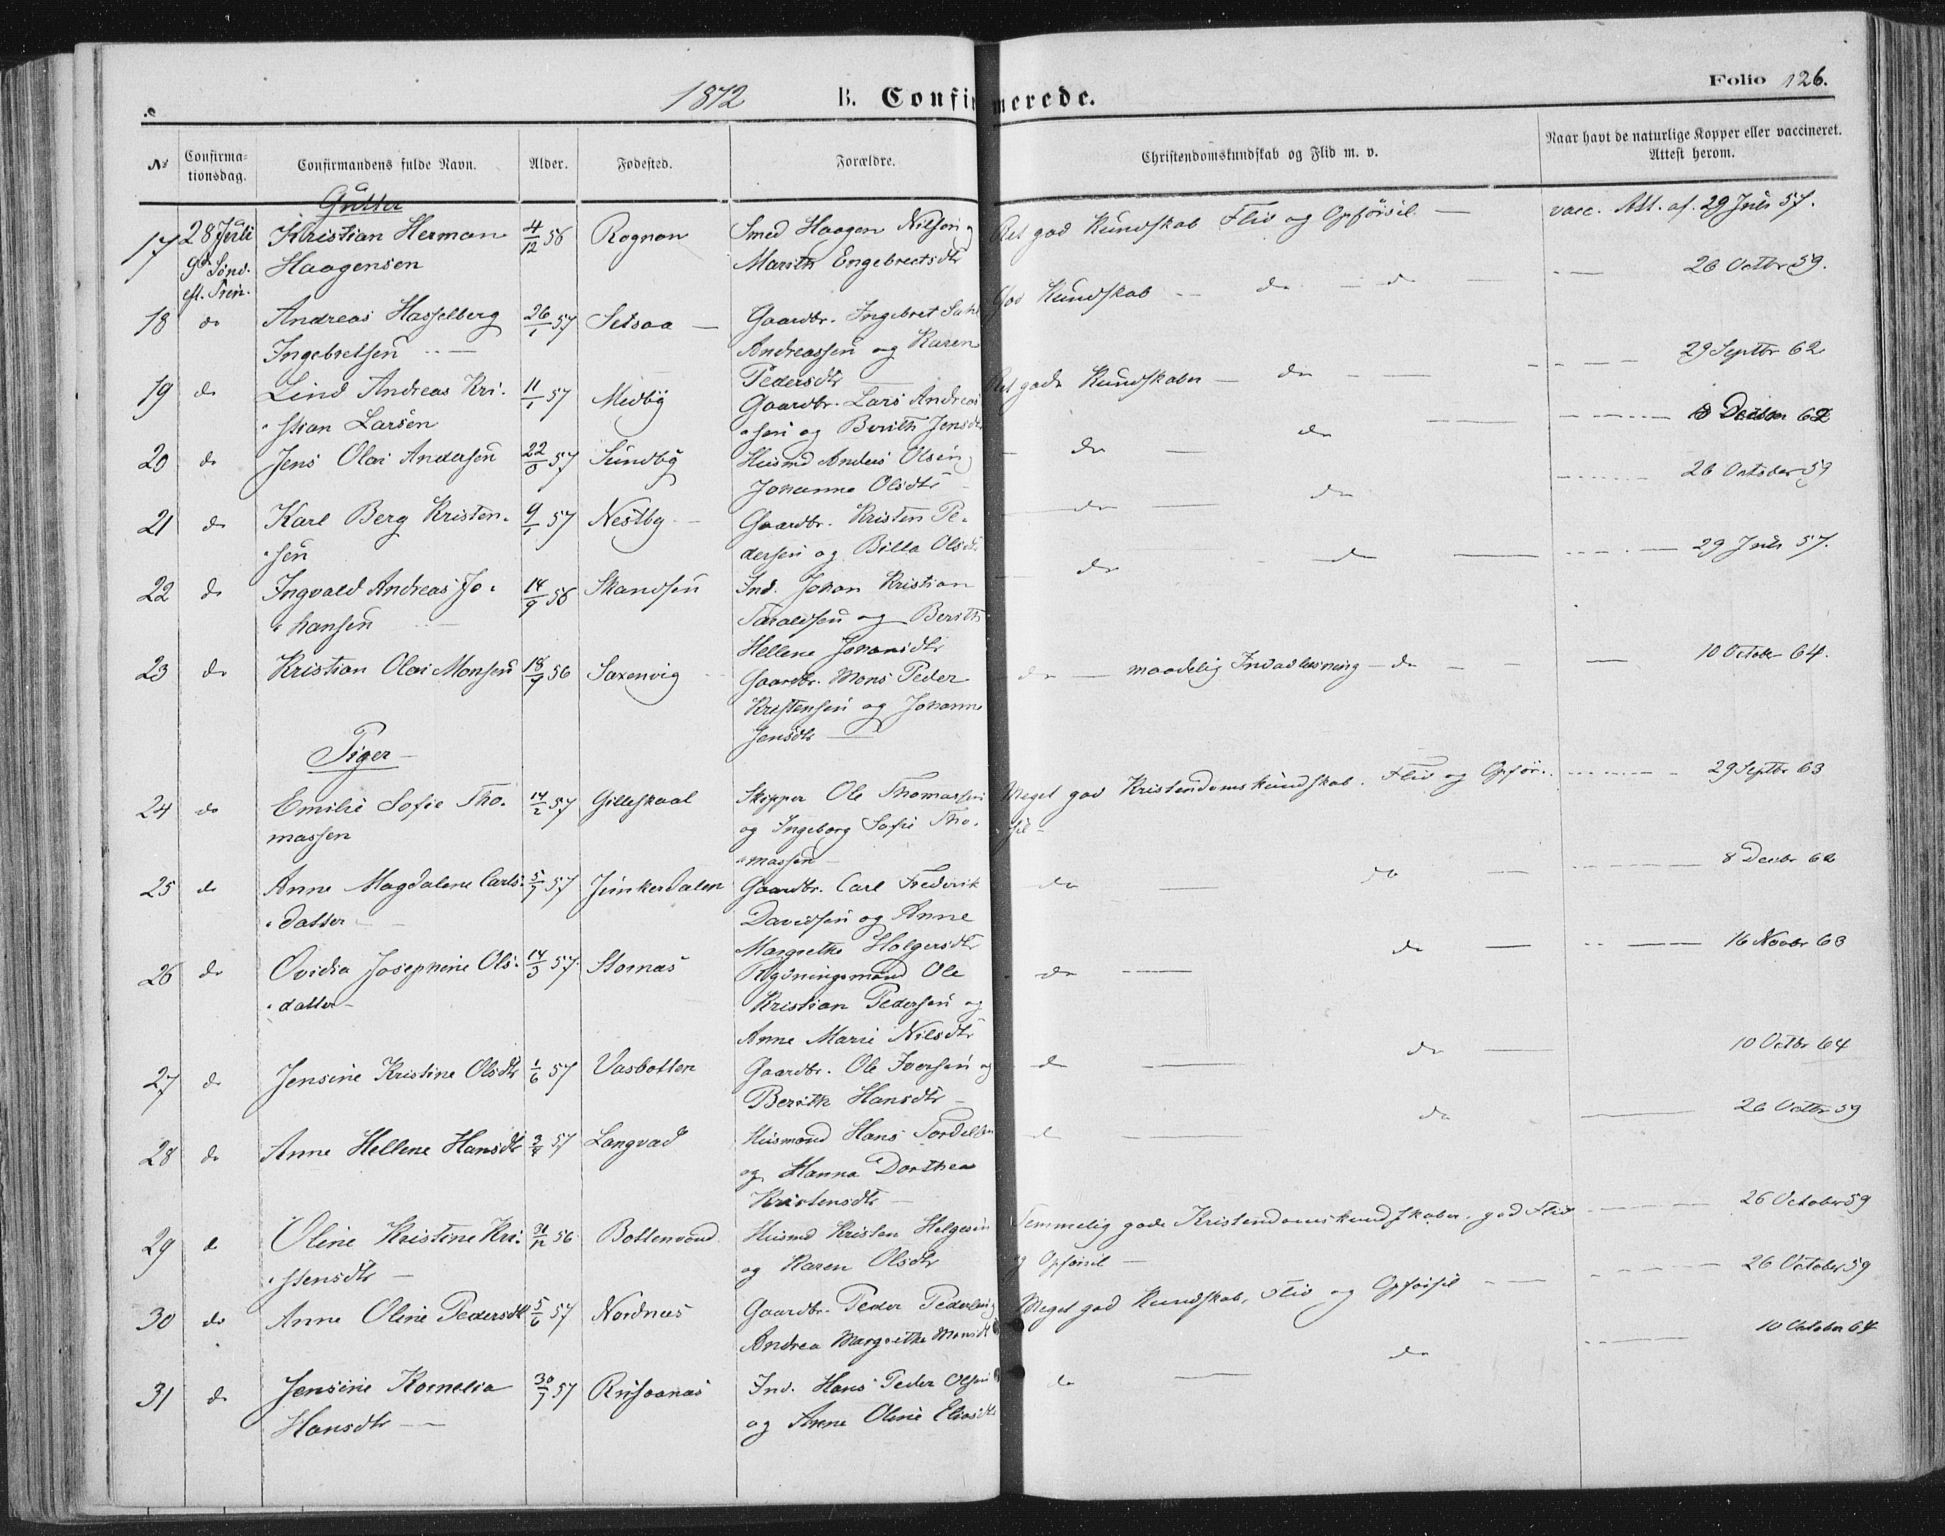 1872 B. Confirmerede. Folio 126.
№ Confirmationsdag. Confirmandens fulde Navn. Alder. Fødested. Forældre. Christendomskundskab og Flid m. v. Naar havt de naturlige Kopper eller vaccineret. Attest herom.
Gutter
17 28 Juli Kristian Herman 4/12 56 Rognan Smed Haagen Nilsen og Ret god Kundskab Flid og Opførsel — vacc. Att. af. 29 Juli 57.
9de Sønd. Haagensen Marith Engebretsdtr
eft. Trin.
18 do Andreas Hasselberg 26/1 57 Setsaa — Gaardbr. Ingebret God Kundskab — do — do — 26 Octbr 59.
Ingebretsen Andreassen og Karen
Pedersdtr
19 do Lind Andreas Kri- 11/1 57 Medby Gaardbr. Lars Andreas Ret gode Kundskaber — do — 29 Septbr 62
stian Larsen sen og Berith Jensdtr
20 do Jens Olai Andersen 22/6 57 Sundby Husmd Anders Olsen — do — do — 8 Decbr 62
Johanne Olsdtr
21 do Karl Berg Kristen- 9/1 57 Nestby — Gaardbr. Kristen Pe- — do — do 26 October 59
sen dersen og Bille Olsdtr
22 do Ingvald Andreas Jo- 14/9 56 Skandsen Ind. Johan Kristian — do — do — 29 Juli 57.
hansen Taraldsen og Berith
Hellene Johansdtr
23 do Kristian Olai Monsen 18/9 56 Saxenvig Gaardbr. Mons Peder do — maadelig Indadlæsning — do — 10 October 64.
Kristensen og Johanne
Jensdtr —
Piger —
24 do Emilie Sofie Tho- 14/2 57 Gilleskaal Skipper Ole Thomassen Meget god Kristendomskundskab. Flid og Opfør- 29 Septbr 63
massen og Ingeborg Sofie Tho- sel —
massen —
25 do Anne Magdalene Carls- 5/7 57 Junkerdalen Gaardbr. Carl Frederik do — do — 8 Decbr 62
datter — Davidsen og Anne
Margrethe Holgersdtr
26 do Ovidia Josephine Ols- 14/3 57 Stornæs Rydningsmand Ole do — do — 16 Novbr 63
datter — Kristian Pedersen og
Anne Marie Nilsdtr
27 do Jensine Kristine Olsdtr 1/6 57 Vasbotten Gaardbr. Ole Iversen og do — do — 10 Octbr 64
Berith Hansdtr —
28 do Anne Hellene Hansdtr 57 Langvad Husmand Hans do — do — 26 Octbr 59
og Hanna Dorthea
Kristensdtr —
29 do Oline Kristine Kri- 56 Bottenvand Husmd Kristen Helgesen Temmelig gode Kristendomskundskaber. god Flid — 26 October 59
stensdtr — og Karen Olsdtr og Opførsel —
30 do Anne Oline Pedersdtr 5/6 57 Nordnæs Gaardbr. Peder Pedersen og Meget god Kundskab, Flid og Opførsel — 26 October 59
Andrea Margrethe Monsdtr
31 do Jensine Kornelia 30/7 57 Rusaanæs Ind. Hans Peder Olsen do — do — 10 October 64
Hansdtr — og Anne Oline Eliasdtr